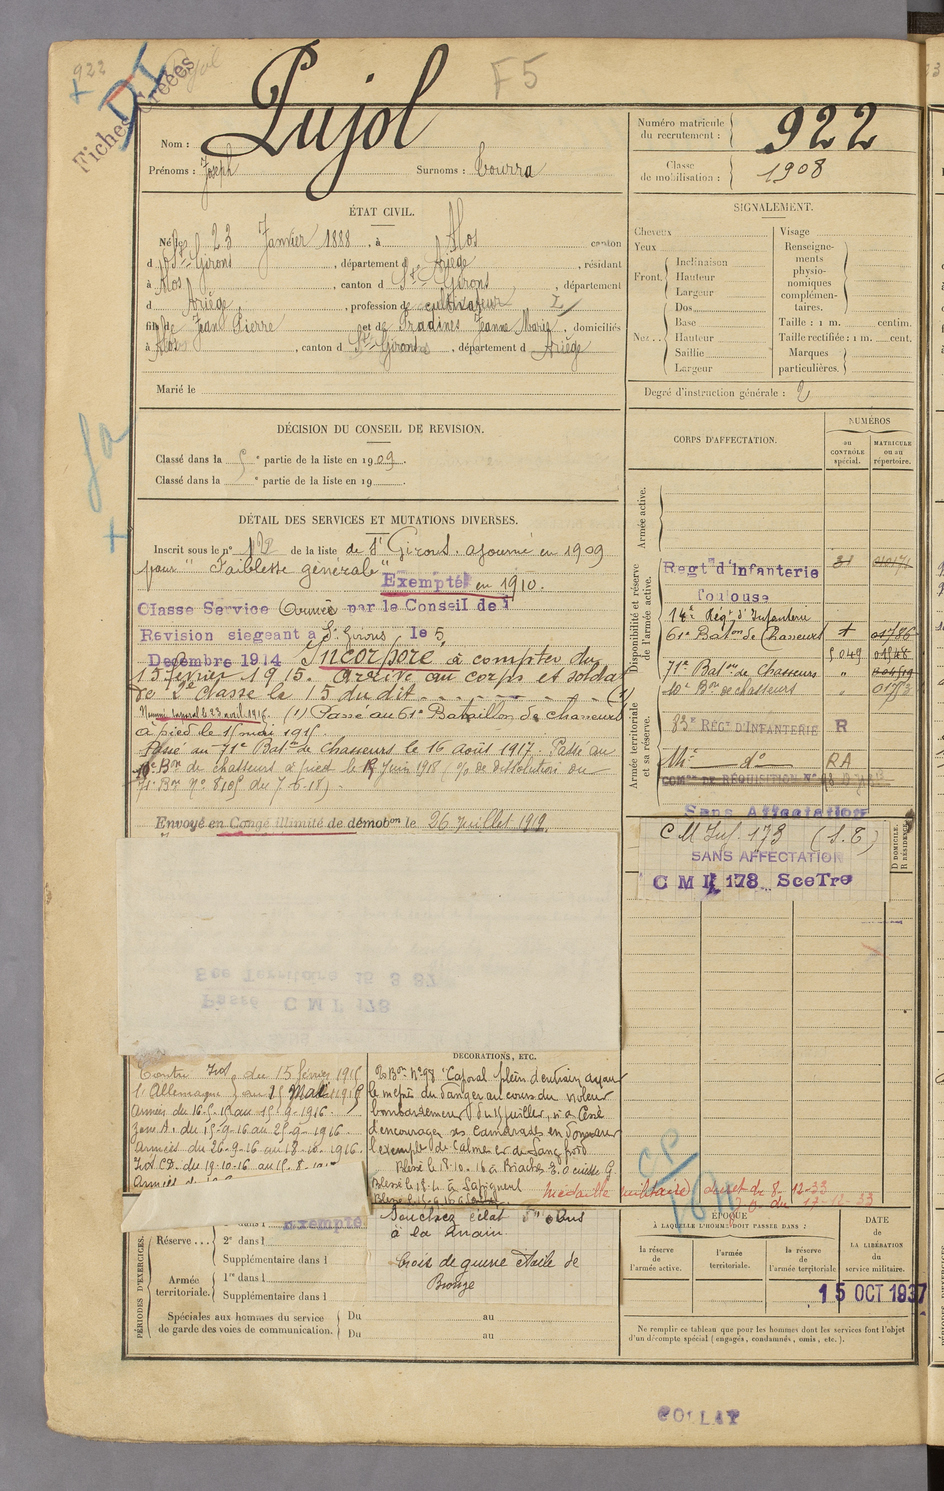 922
Fiches Créées
F5
Nom : Pujol
Prénoms : Joseph Surnoms : Courra
Numéro matricule du recrutement : 922
Classe de mobilisation : 1908
ÉTAT CIVIL.
Né le 23 Janvier 1888, à Alos canton
d St-Girons, département d Ariège, résidant
à Alos, canton d St-Girons, département
d Ariège, profession de cultivateur
fils de Jean Pierre et de Gradines Jeanne Marie, domiciliés
à Alos, canton d St-Girons, département d Ariège
Marié le
SIGNALEMENT.
Cheveux
Yeux
Front. Inclinaison
Hauteur
Largeur
Nez.. Dos
Base
Hauteur
Saillie
Largeur
Visage
Renseignements physionomiques complémentaires.
Taille : 1 m. centim.
Taille rectifiée : 1 m. cent.
Marques particulières.
Degré d'instruction générale : 2
DÉCISION DU CONSEIL DE REVISION.
Classé dans la 5e partie de la liste en 1909.
Classé dans la e partie de la liste en 19
DÉTAIL DES SERVICES ET MUTATIONS DIVERSES.
Inscrit sous le n° 12 de la liste de St Girons. ajourné en 1909
pour "Faiblesse générale"
Exempté en 1910.
Classe Service Armée par le Conseil de
Revision siegeant a St Girons, le 5
Decembre 1914 Incorporé à compter du
15 février 1915. Arrivé au corps et soldat
de 2e classe le 15 du dit (1)
(1) Passé au 61e Bataillon de chasseurs
à pied le 15 mai 1915
Passé au 71e Baton de Chasseurs le 16 août 1917. Passé au
10e Bon de chasseurs à pied le 12 Juin 1918 (% de dissolution du
71e Bon N° 8105 du 7-6-18).
Envoyé en Congé illimité de démobon le 26 Juillet 1919.
CORPS D'AFFECTATION.
NUMÉROS
au CONTRÔLE spécial.
MATRICULE ou au répertoire.
Armée active.
Disponibilité et réserve de l'armée active.
Regt d'Infanterie
Toulouse
14e Régt d'Infanterie
61e Baton de Chasseurs
71e Baton de Chasseurs
10e Bon de chasseurs
Armée territoriale et sa réserve.
83e REGT D'INFANTERIE R
do RA
Sans Affectation
C M Inf. 173 (S.T.)
SANS AFFECTATION
C M I 178 SceTre
D DOMICILE.
R RÉSIDENCE.
Sce Territoire 15 3 37
Passé C M I 178
DÉCORATIONS, ETC.
Contre du 15 février 1915
l'Allemagne au 15 Mai 1915
Armées du 16-5-15 au 15-9-1916
Zon. A. du 15-9-16 au 25-9-1916
Armées du 26-9-16 au 18-10-1916.
Int. CD. du 19-10-16 au 15-8-10
"Caporal plein d'entrain ayant
le mépris du danger au cours du violent
bombardement du 15 juillet, n'a cessé
d'encourager ses camarades en donnant
l'exemple de Calme et de Sang froid
Blessé le 18-10-16 à Biaches E.O cuisse G
Blessé le 18-4- à Sapigneul
Souchez éclat d'obus
à la main
Croix de guerre étoile de
Bronze
Médaille militaire décret du 8-12-33
J.O. du 17-12-33
PÉRIODES D'EXERCICES.
Exempté
Réserve...
2e dans l
Supplémentaire dans l
Armée territoriale.
1re dans l
Supplémentaire dans l
Spéciales aux hommes du service de garde des voies de communication.
Du au
Du au
ÉPOQUE
À LAQUELLE L'HOMME DOIT PASSER DANS :
la réserve de l'armée active.
l'armée territoriale.
la réserve de l'armée territoriale
DATE de LA LIBÉRATION du service militaire.
15 OCT 1937
Ne remplir ce tableau que pour les hommes dont les services font l'objet
d'un décompte spécial (engagés, condamnés, omis, etc.).
COLLAT